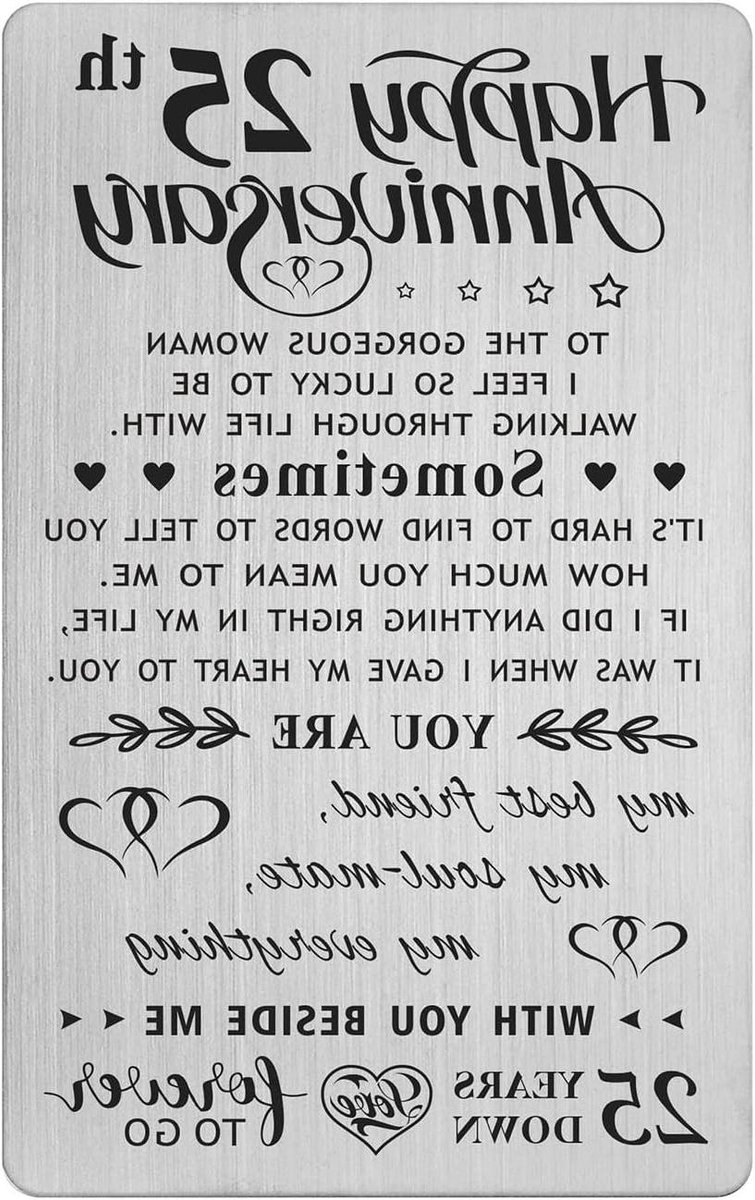 Happy 25 th
Anniversary
TO THE GORGEOUS WOMAN
I FEEL SO LUCKY TO BE
WALKING THROUGH LIFE WITH.
Sometimes
IT'S HARD TO FIND WORDS TO TELL YOU
HOW MUCH YOU MEAN TO ME.
IF I DID ANYTHING RIGHT IN MY LIFE,
IT WAS WHEN I GAVE MY HEART TO YOU.
YOU ARE
my best friend,
my soul-mate,
my everything
WITH YOU BESIDE ME
25 YEARS DOWN
Love
forever TO GO